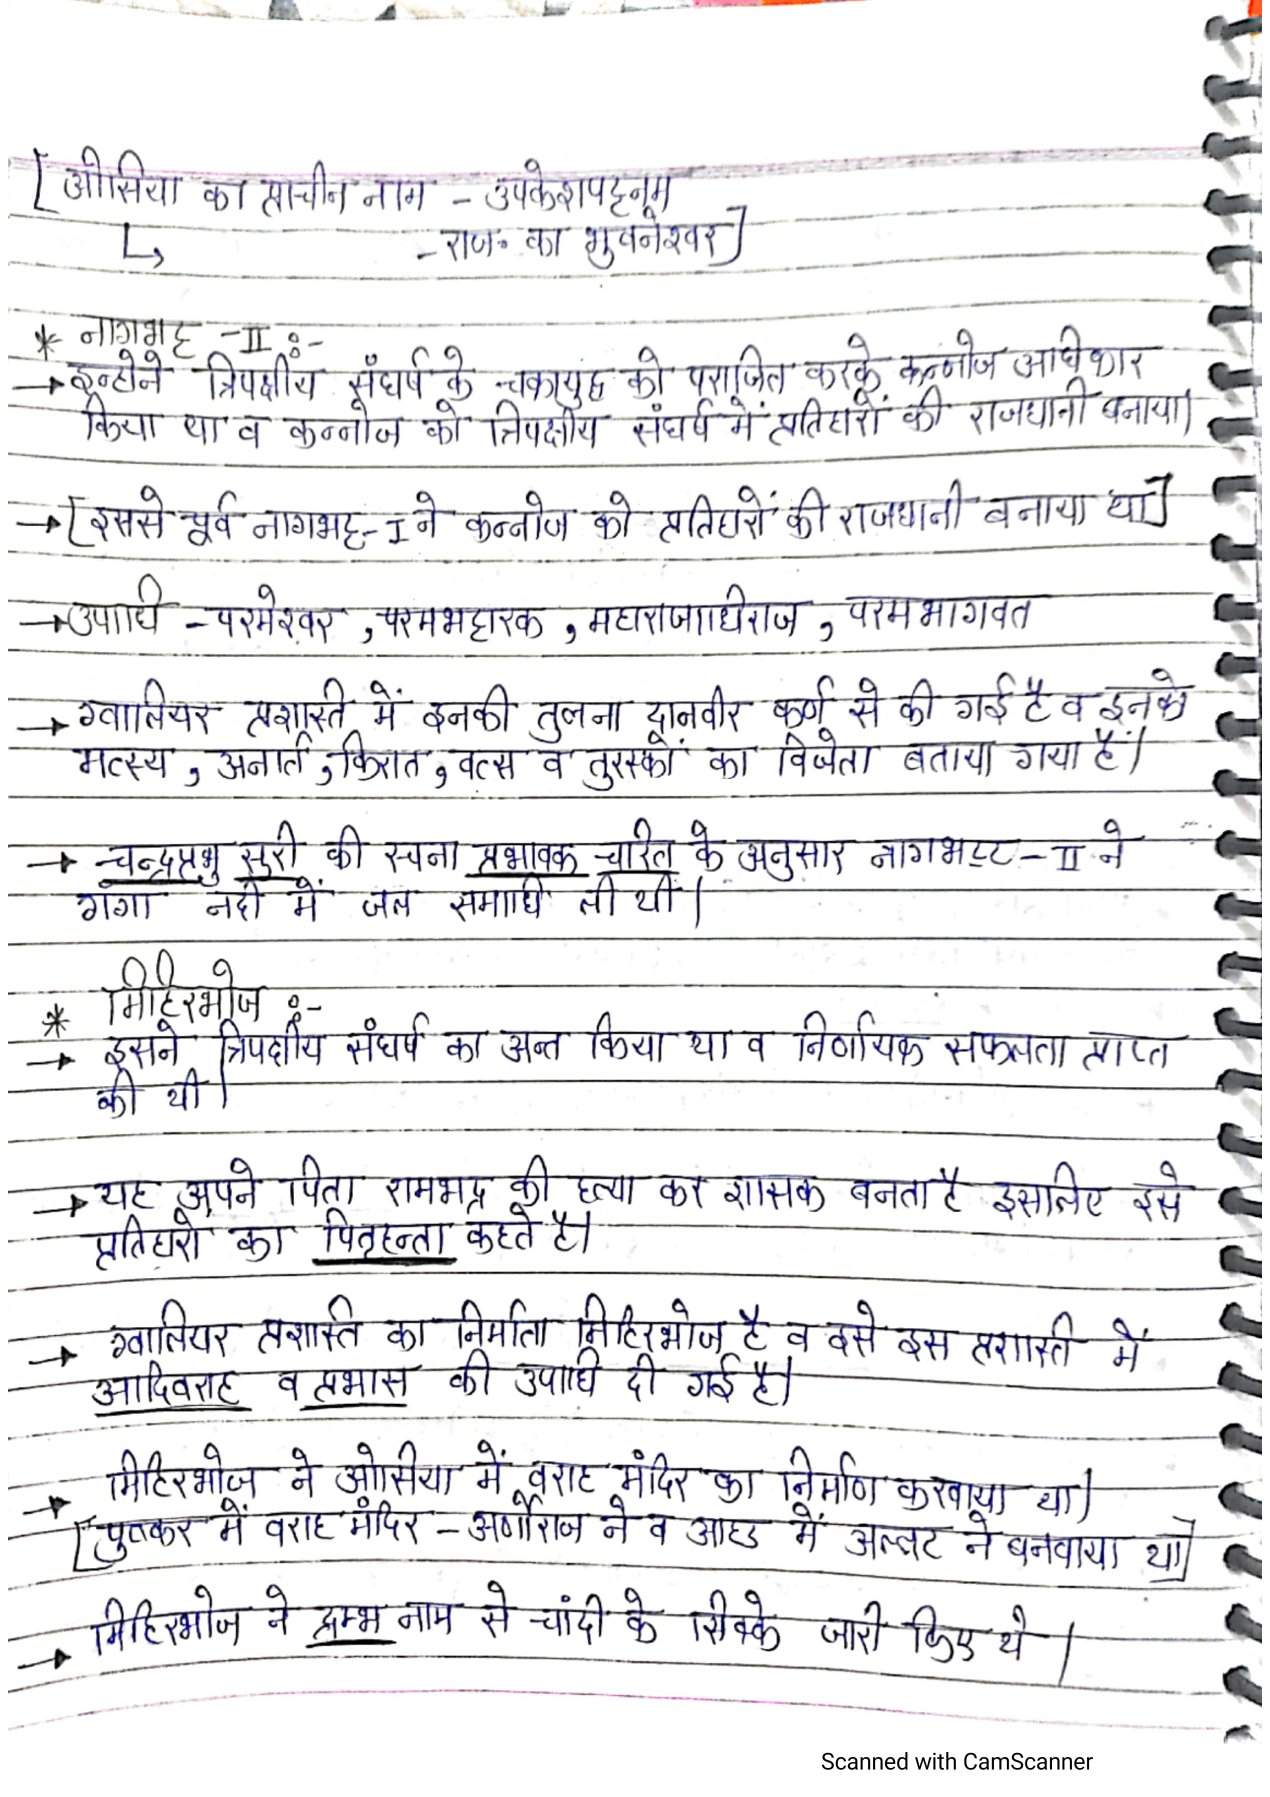 [ओसिया का प्राचीन नाम - उपकेशपट्टनम
↳ - राज. का भुवनेश्वर]
* नागभट्ट -II :-
→ इन्होने त्रिपक्षीय संघर्ष के चक्रायुद्ध को पराजित करके कन्नोज अधिकार
किया था व कन्नोज को त्रिपक्षीय संघर्ष में प्रतिहारों की राजधानी बनाया|
→ [इससे पूर्व नागभट्ट-I ने कन्नोज को प्रतिहारों की राजधानी बनाया था]
→ उपाधि - परमेश्वर, परमभट्टारक, महाराजाधिराज, परमभागवत
→ ग्वालियर प्रशस्ति में इनकी तुलना दानवीर कर्ण से की गई है व इनको
मत्स्य, अनार्त, किरात, वत्स व तुरस्कों का विजेता बताया गया है|
→ चन्द्रप्रभु सूरी की रचना प्रभावक चरित के अनुसार नागभट्ट-II ने
गंगा नदी में जल समाधि ली थी|
* मिहिरभोज :-
→ इसने त्रिपक्षीय संघर्ष का अन्त किया था व निर्णायक सफलता प्राप्त
की थी|
→ यह अपने पिता रामभद्र की हत्या कर शासक बनता है इसलिए इसे
प्रतिहारो का पितृहन्ता कहते है|
→ ग्वालियर प्रशस्ति का निर्माता मिहिरभोज है व इसे इस प्रशास्ती में
आदिवराह व प्रभास की उपाधि दी गई है|
→ मिहिरभोज ने ओसिया में वराह मंदिर का निर्माण करवाया था|
[पुष्कर में वराह मंदिर - अर्णोराज ने व आहड में अल्लट ने बनवाया था]
→ मिहिरभोज ने द्रम्भ नाम से चांदी के सिक्के जारी किए थे|
Scanned with CamScanner